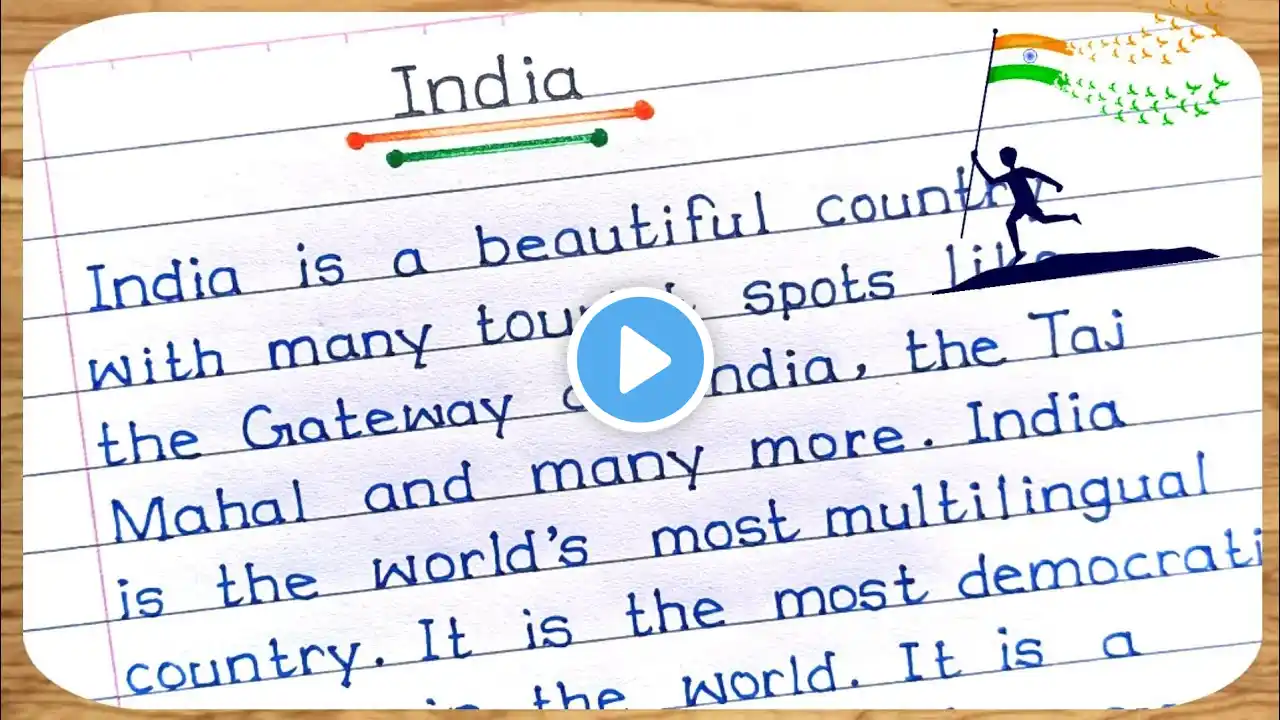 India
India is a beautiful country
with many spots like
the Gateway India, the Taj
Mahal and many more. India
is the world's most multilingual
country. It is the most democrati
in the world. It is a